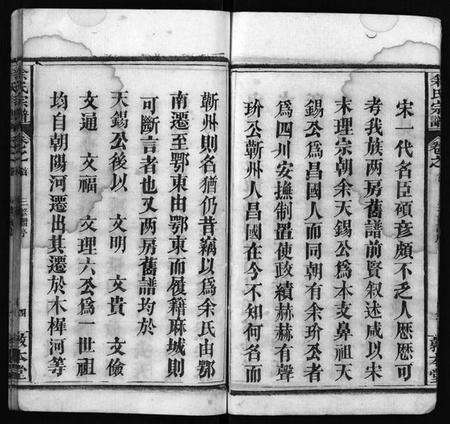 宋一代名臣碩彥頗不乏人歷歷可
考我族兩房舊譜前賢叙述咸以宋
末理宗朝余天錫公為木支鼻祖天
錫公為昌國人而同朝有余玠公者
為四川安撫制置使政績赫赫有聲
玠公蘄州人昌國在今不知何名而
蘄州則名猶仍昔竊以為余氏由鄂
南遷至鄂東由鄂東而復籍麻城則
可斷言者也又兩房舊譜均於
天錫公後以 文明 文貴 文儉
文通 文福 文理六公為一世祖
均自朝陽河遷出其遷於木樨河等
余氏宗譜
卷之首
敦本堂